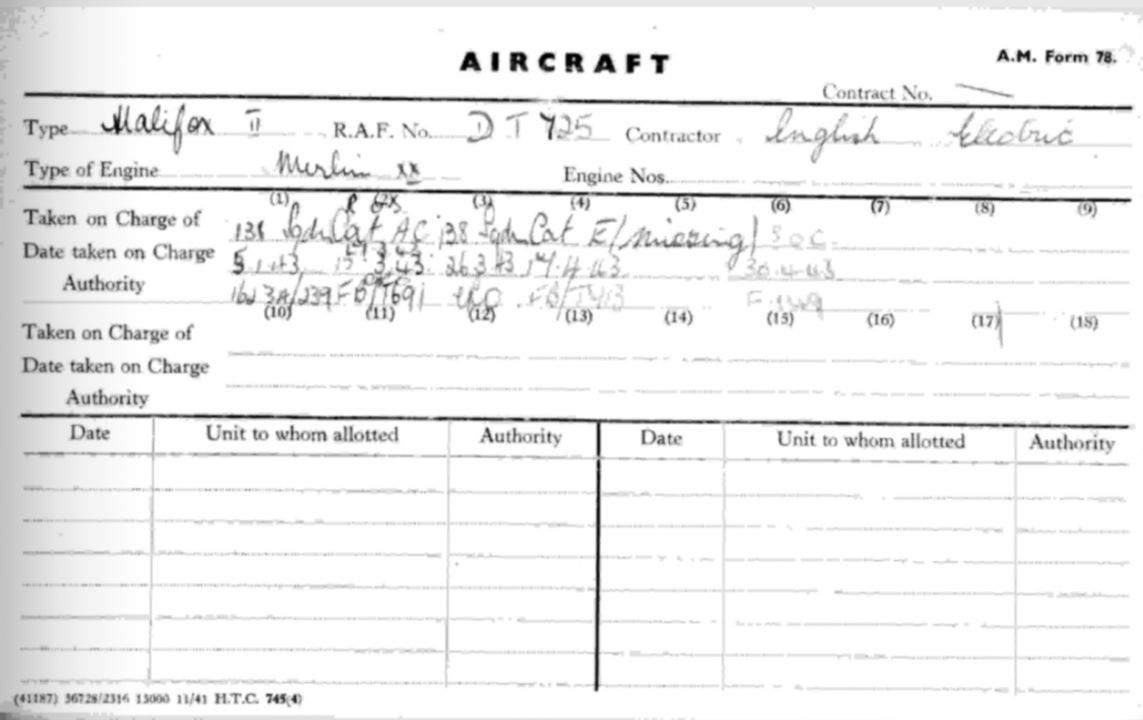 AIRCRAFT
A.M. Form 78.
Contract No.
Type Halifax II R.A.F. No. DT 725 Contractor English Electric
Type of Engine Merlin XX Engine Nos.
(1) (3) (4) (5) (6) (7) (8) (9)
Taken on Charge of 138 Sqdn Cat AC 138 Sqdn Cat E/missing/ SOC
Date taken on Charge 5.1.43 15.3.43. 26.3.43 14.4.43 30.4.43
Authority FB/T691 FB/T413
(10) (11) (12) (13) (14) (15) (16) (17) (18)
Taken on Charge of
Date taken on Charge
Authority
Date Unit to whom allotted Authority Date Unit to whom allotted Authority
(41187) 36728/2316 15000 11/41 H.T.C. 745(4)